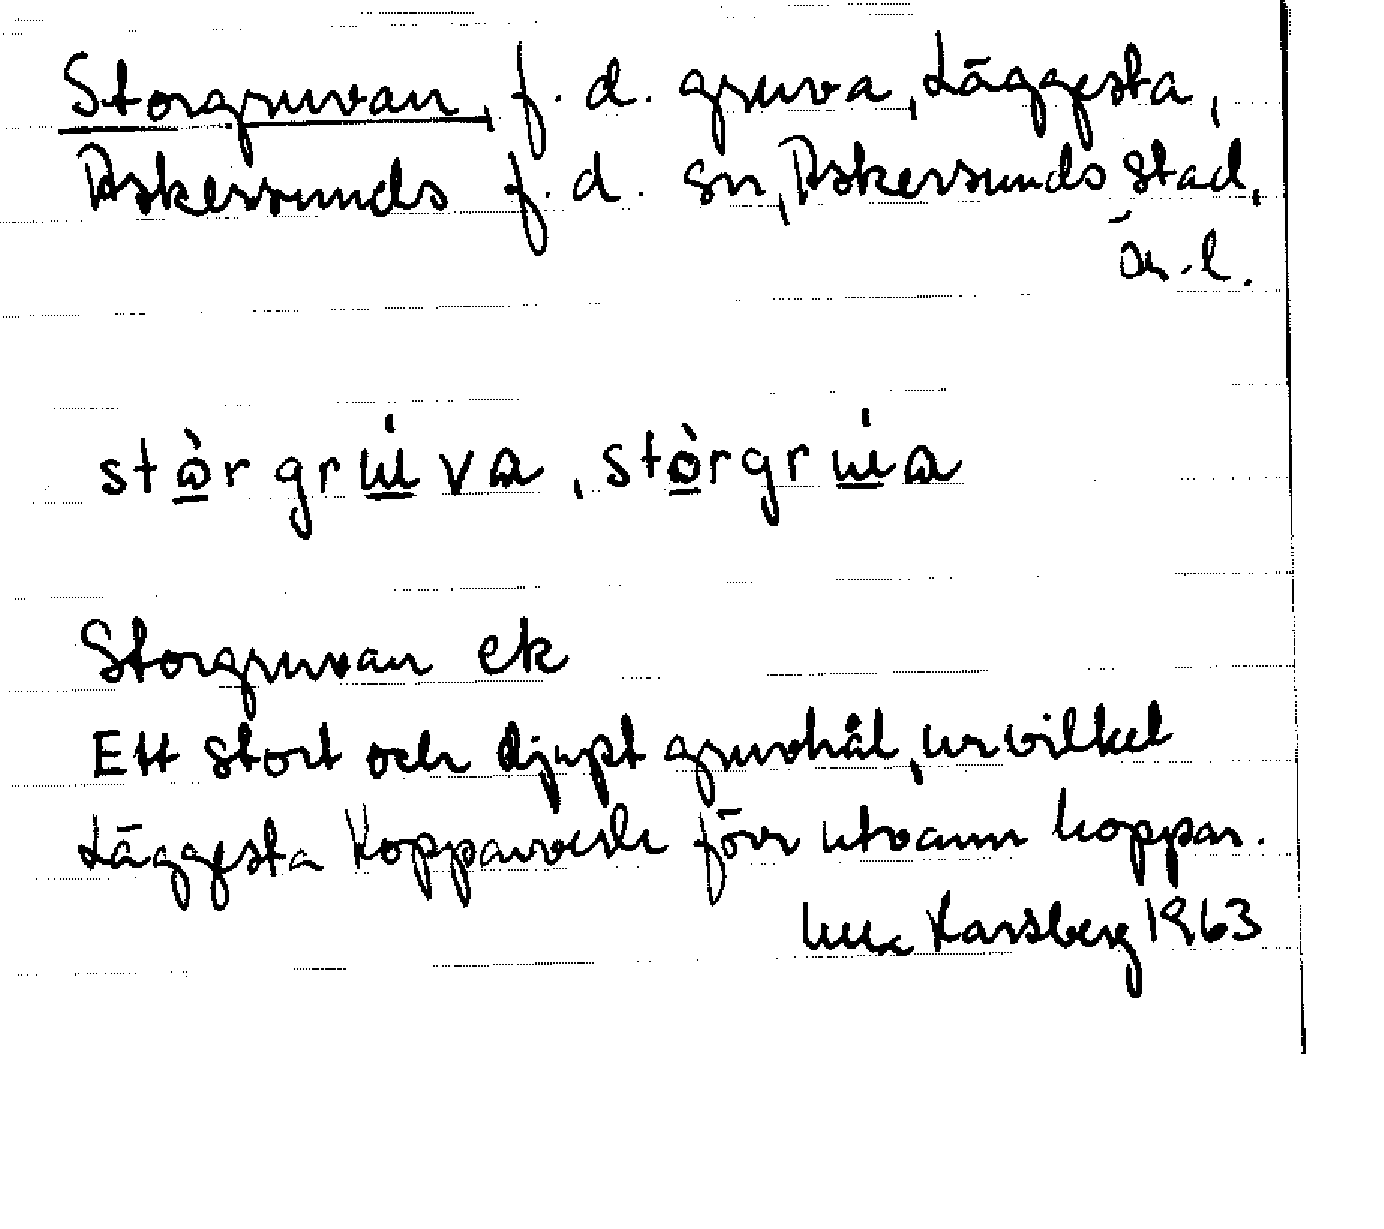 Storgruvan, f.d. gruva, Läggesta,
Askersunds f.d. sn, Askersunds stad,
ä.l.
stò̱rgrɯ́va, stò̱rgrɯ́a
Storgruvan ek
Ett stort och djupt gruvhål, ur vilket
Läggesta Kopparverk förr utvann koppar.
Karsberg 1963